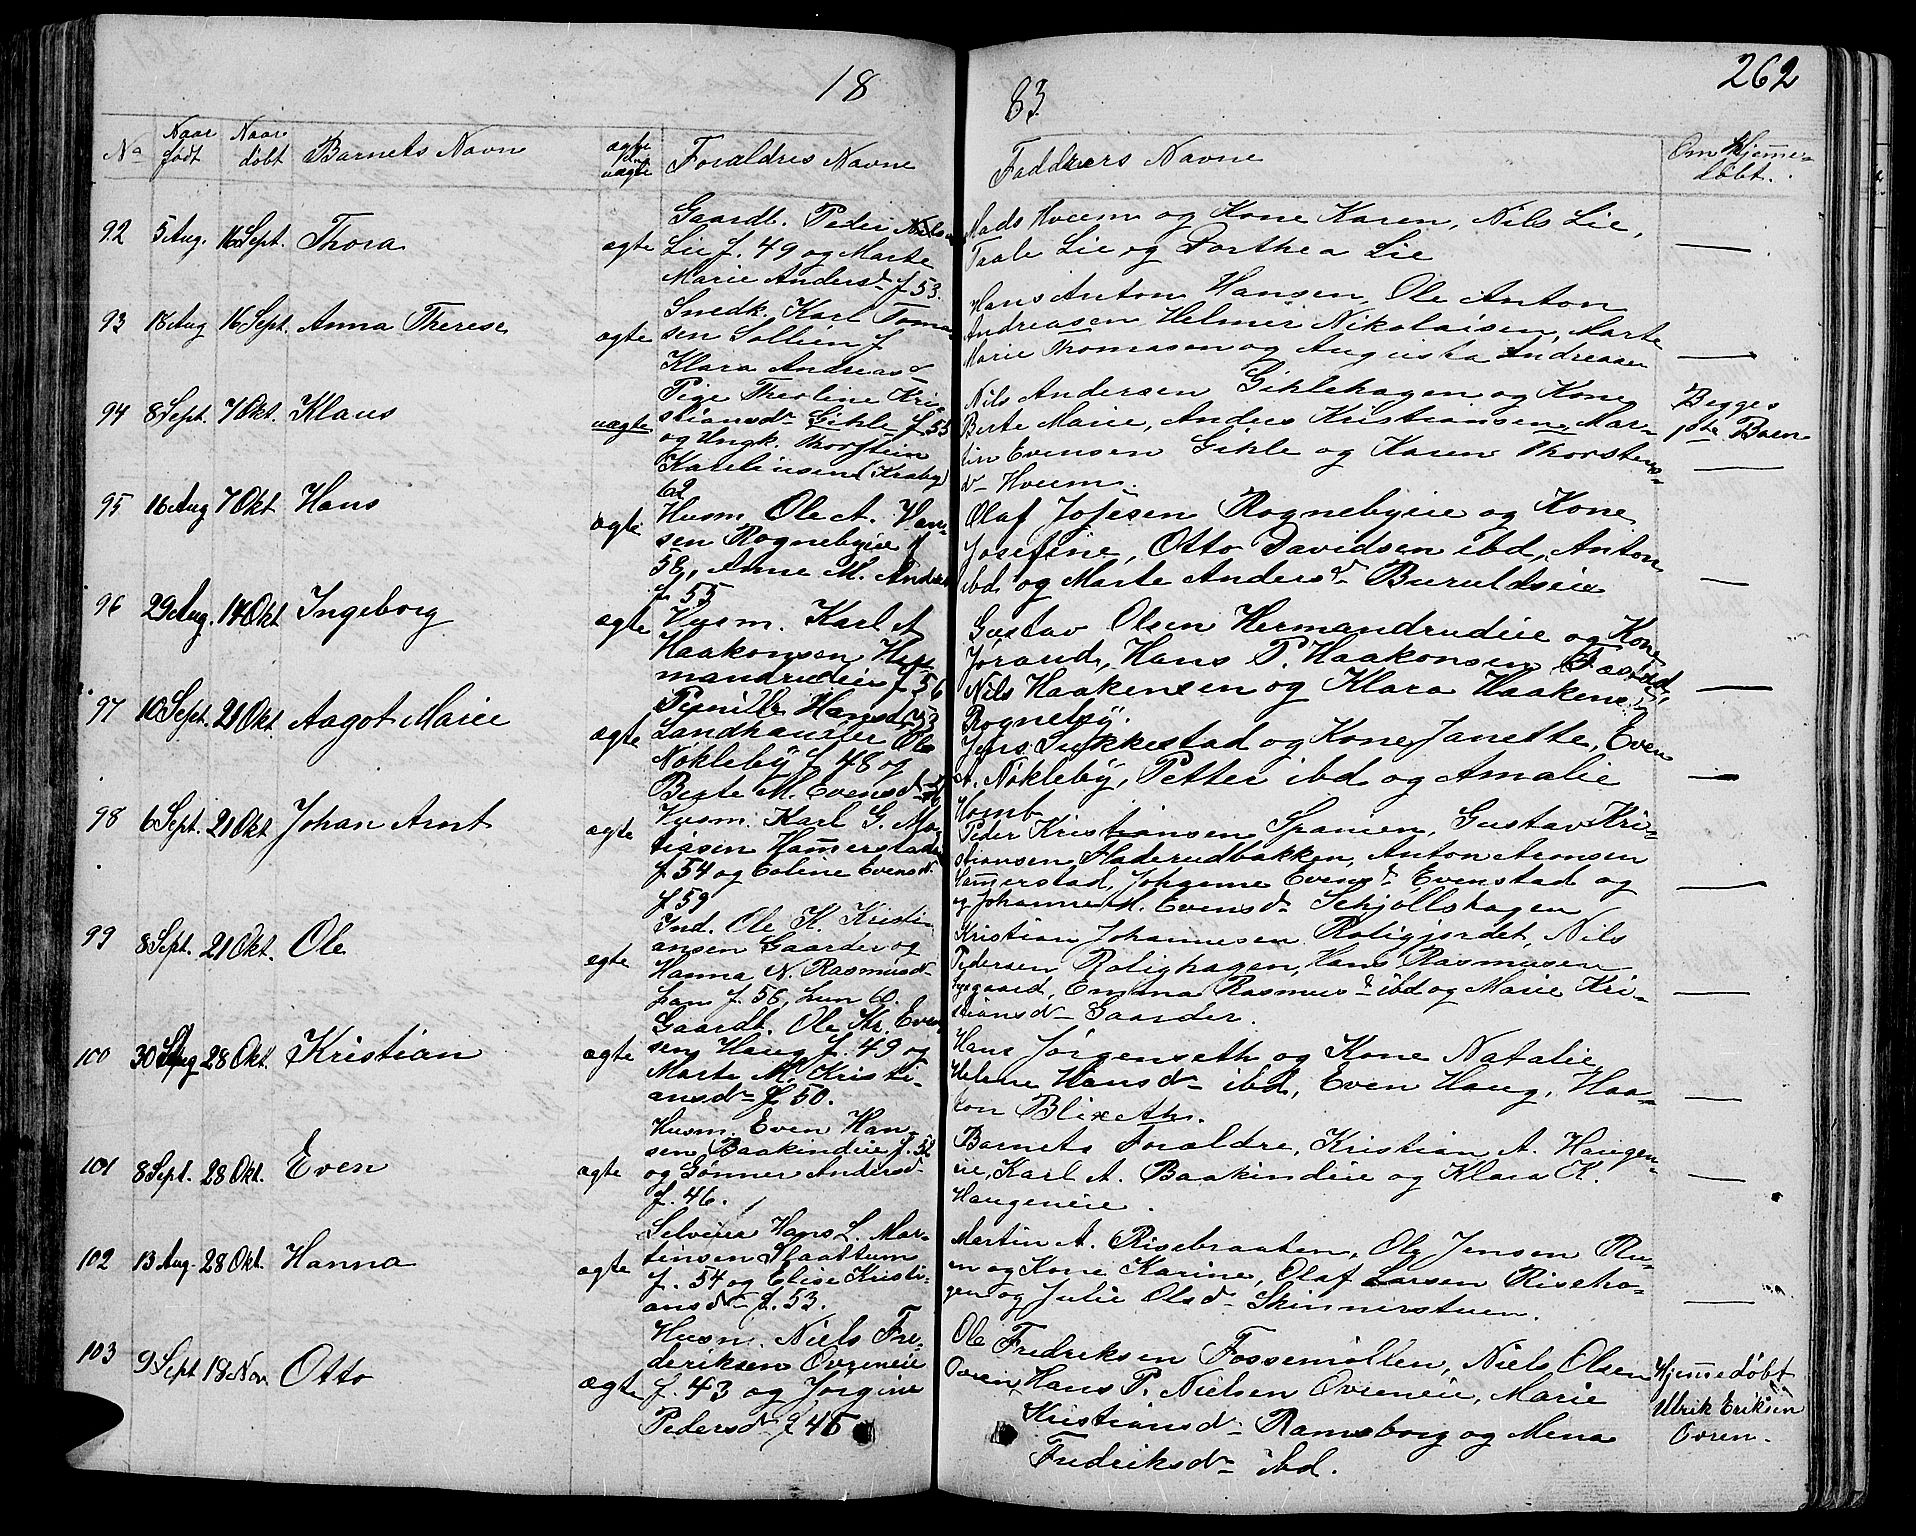 18
83
262
No Naar født Naar døbt Barnets Navn ægte eller uægte Forældres Navne Fadderes Navne Om Hjemmedøbt.
92 5 Aug. 16 Sept. Thora ægte
Gaardb. Peder Nilsen
Lie f. 49 og Marte
Marie Andersd. f 53.
Mads Hveem og Kone Karen, Nils Lie,
Taale Lie og Dorthea Lie
—
93 18 Aug 16 Sept. Anna Therese ægte
Snedk. Karl Toma-
sen Sollien f
Klara Andreasd
Hans Anton Hansen, Ole Anton
Andreasen, Helmer Nikolaisen, Marte
Marie Thomasen og Augusta Andreasen
—
94 8 Sept. 7 Okt. Klaus uægte
Pige Theoline Kri-
stiansdr Gihle f 55
og Ungk. Thorstein
Karelinsen (Kraby)
62
Nils Andersen Gihlehagen og Kone
Berte Marie, Anders Kristiansen, Mar-
tin Evensen Gihle og Karen Thorstens-
dr Hveem.
Begges
1ste Barn
—
95 16 Aug 7 Okt Hans ægte
Husm. Ole A. Han-
sen Rognebyeie f
58, Anne M. Andersd
f. 55
Olaf Josesen Rognebyeie og Kone
Josefine, Otto Davidsen ibd, Anton
ibd og Marte Andersd Buruldseie
—
96 29 Aug. 14 Okt Ingeborg ægte
Husm. Karl A
Haakonsen Her-
mandrudeie f 56
Pernille Hansd f 53
Gustav Olsen Hermandrudeie og Kone
Jørand, Hans P. Haakonsen Fastad,
Nils Haakensen og Klara Haakens
Rogneby.
—
97 10 Sept. 21 Okt Aagot Marie ægte
Landhandler Ole
Nøkleby f 48 og
Berte M. Evensdr
Jens Sukkestad og Kone Janette, Even
A. Nøkleby, Petter ibd og Amalie
Homb
—
98 6 Sept. 21 Okt Johan Arnt ægte
Husm. Karl G. Ma-
tiasen Hammerstad
f. 54 og Eoline Evensdr
f 59
Peder Kristiansen Spanien, Gustav Kri-
stiansen Haderudbakken, Anton Aronsen
Hammerstad, Johanne Evensd Evenstad og
og Johanne M. Evensdr Schjøllshagen
—
99 8 Sept. 21 Okt. Ole ægte
Ind. Ole K. Kristi-
ansen Gaarder og
Hanna N. Rasmusdr
han f. 56, hun 60.
Kristian Johannesen Roligjordet, Nils
Pedersen Rolighagen, Hans Rasmusen
Nygaard, Emma Rasmusd ibd og Marie Kri-
stiansdr Gaarder.
—
100 30 Aug 28 Okt. Kristian ægte
Gaardb. Ole Kr. Even-
sen Haug f. 49 og
Marte M. Kristi-
ansdr f 50.
Hans Jørgenseth og Kone Natalie,
Helene Hansdr ibd, Even Haug, Haa-
kon Blixeth.
—
101 8 Sept. 28 Okt. Even ægte
Husm. Even Han-
sen Baakindeie f. 52
og Gønner Andersdr
f. 46.
Barnets Forældre, Kristian A. Haugen-
eie, Karl A. Baakindeie og Klara K.
Haugeneie.
—
102 13 Aug. 28 Okt. Hanna ægte
Selveier Hans L. Mar-
tinsen Flaattum
f. 54 og Elise Kristi-
ansdr f. 53.
Martin A. Risebraaten, Ole Jensen Ru-
en og Kone Karine, Olaf Larsen Riseha-
gen og Julie Olsdr Skinnerstuen.
—
103 9 Sept 18 Nov Otto ægte
Husm. Niels Fre-
deriksen Ovreneie
f. 43 og Jorgine
Pedersdr f 45
Ole Fredriksen Fossemøllen, Niels Olsen
Ovren, Hans P. Nielsen Ovreneie, Marie
Kristiansdr Ramsborg og Mena
Fredriksdr ibd.
Hjemmedøbt
af
Ulrik Eriksen
Ovren.